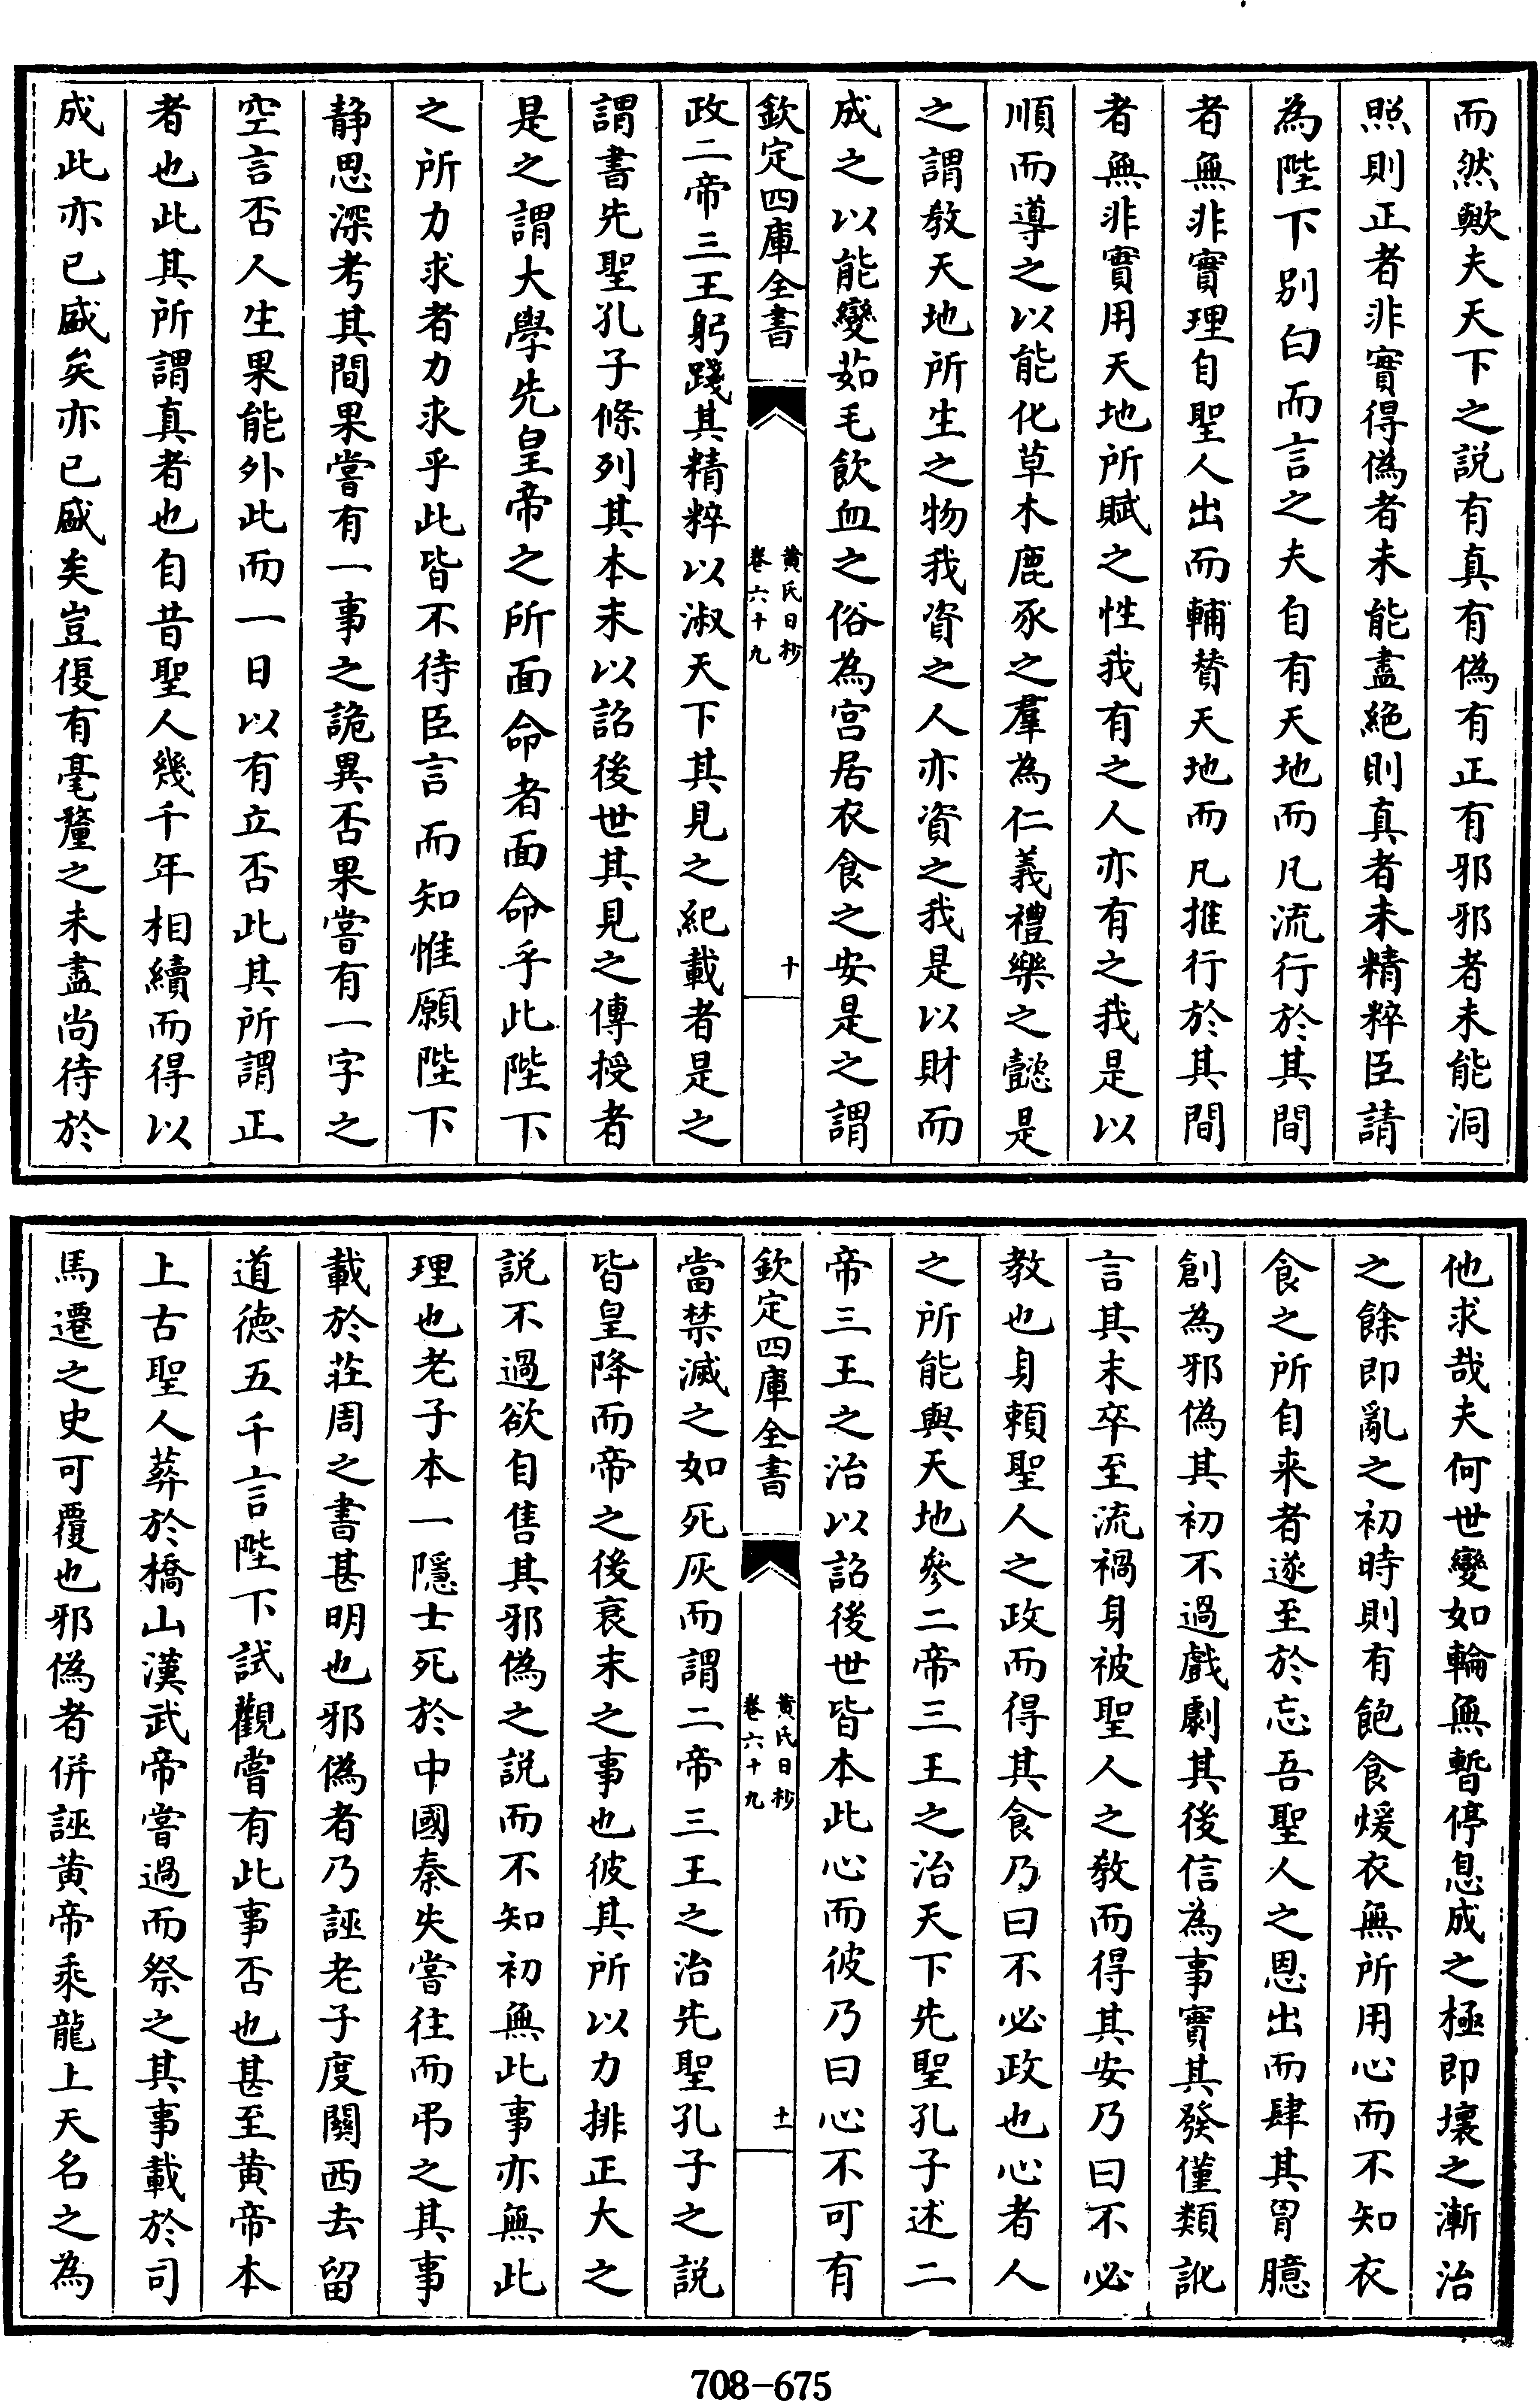 而然歟夫天下之説有真有偽有正有邪邪者未能洞
照則正者非實得偽者未能盡絶則真者未精粹臣請
為陛下别白而言之夫自有天地而凡流行於其間
者無非實理自聖人出而輔賛天地而凡推行於其間
者無非實用天地所賦之性我有之人亦有之我是以
順而導之以能化草木鹿豕之羣為仁義禮樂之懿是
之謂教天地所生之物我資之人亦資之我是以財而
成之以能變茹毛飲血之俗為宫居衣食之安是之謂
欽定四庫全書
黄氏日抄
卷六十九
十
政二帝三王躬踐其精粹以淑天下其見之紀載者是之
謂書先聖孔子條列其本末以詔後世其見之傳授者
是之謂大學先皇帝之所面命者面命乎此陛下
之所力求者力求乎此皆不待臣言而知惟願陛下
静思深考其間果嘗有一事之詭異否果嘗有一字之
空言否人生果能外此而一日以有立否此其所謂正
者也此其所謂真者也自昔聖人幾千年相續而得以
成此亦已盛矣亦已盛矣豈復有毫釐之未盡尚待於
他求哉夫何世變如輪無暫停息成之極即壞之漸治
之餘即亂之初時則有飽食煖衣無所用心而不知衣
食之所自来者遂至於忘吾聖人之恩出而肆其胷臆
創為邪偽其初不過戲劇其後信為事實其發僅類訛
言其末卒至流禍身被聖人之教而得其安乃曰不必
教也身頼聖人之政而得其食乃曰不必政也心者人
之所能與天地參二帝三王之治天下先聖孔子述二
帝三王之治以詔後世皆本此心而彼乃曰心不可有
欽定四庫全書
黄氏日抄
卷六十九
十一
當禁滅之如死灰而謂二帝三王之治先聖孔子之説
皆皇降而帝之後衰末之事也彼其所以力排正大之
説不過欲自售其邪偽之説而不知初無此事亦無此
理也老子本一隱士死於中國秦失嘗往而弔之其事
載於莊周之書甚明也邪偽者乃誣老子度關西去留
道徳五千言陛下試觀嘗有此事否也甚至黄帝本
上古聖人葬於橋山漢武帝嘗過而祭之其事載於司
馬遷之史可覆也邪偽者併誣黄帝乘龍上天名之為
708-675